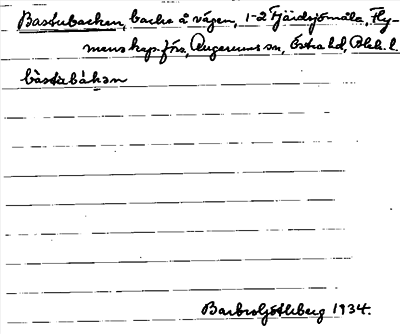 Bastubacken, backe å vägen, 1-2 Fjärdsjömåla, Fly-
mens kap.förs, Augerums sn, Östra hd, Blek. l.
bàstubàkən
Barbro Götleberg 1934.